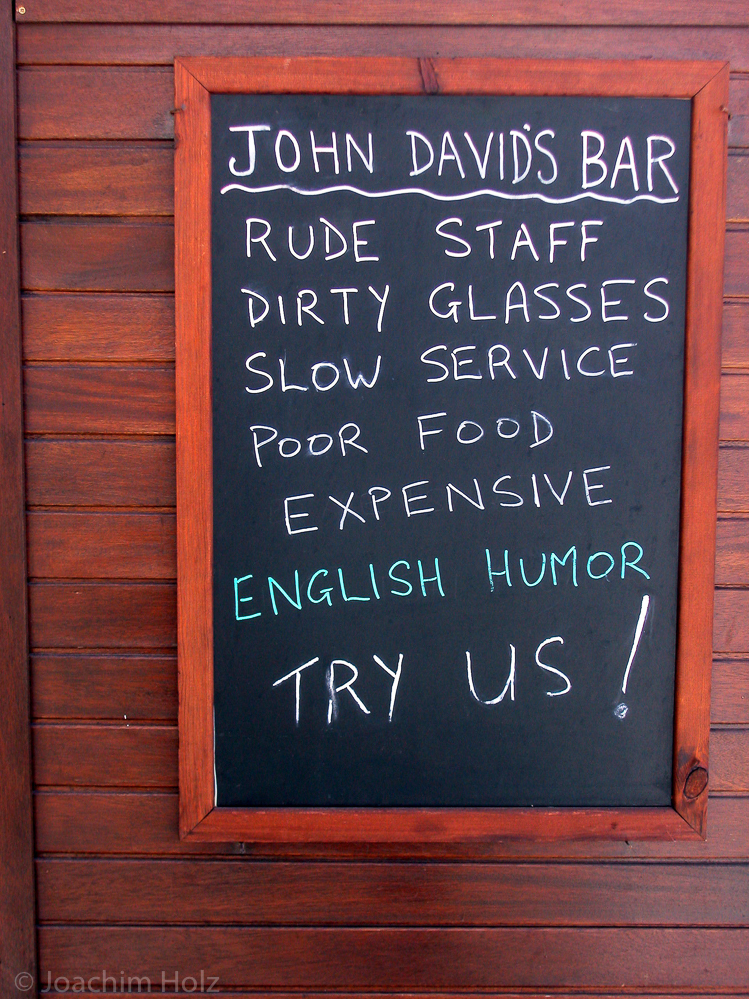 JOHN DAVID'S BAR
RUDE STAFF
DIRTY GLASSES
SLOW SERVICE
POOR FOOD
EXPENSIVE
ENGLISH HUMOR
TRY US!
© Joachim Holz